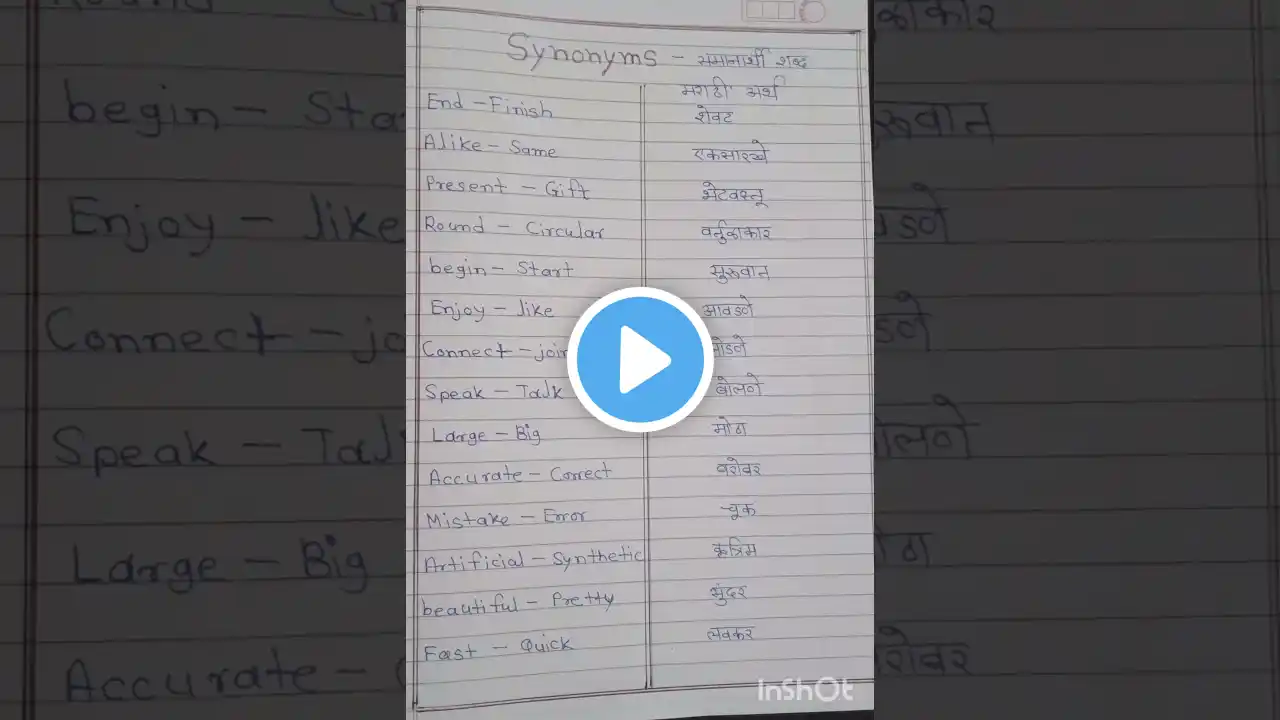 Synonyms - समानार्थी शब्द
मराठी अर्थ
End - Finish शेवट
Alike - Same एकसारखे
Present - Gift भेटवस्तू
Round - Circular वर्तुळाकार
begin - Start सुरूवात
Enjoy - like आवडणे
Connect - join जोडणे
Speak - Talk बोलणे
Large - Big मोठा
Accurate - Correct बरोबर
Mistake - Error चूक
Artificial - Synthetic कृत्रिम
beautiful - Pretty सुंदर
Fast - Quick लवकर
InShOt